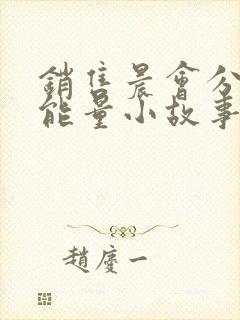 銷售晨會分
能量小故事
趙慶一